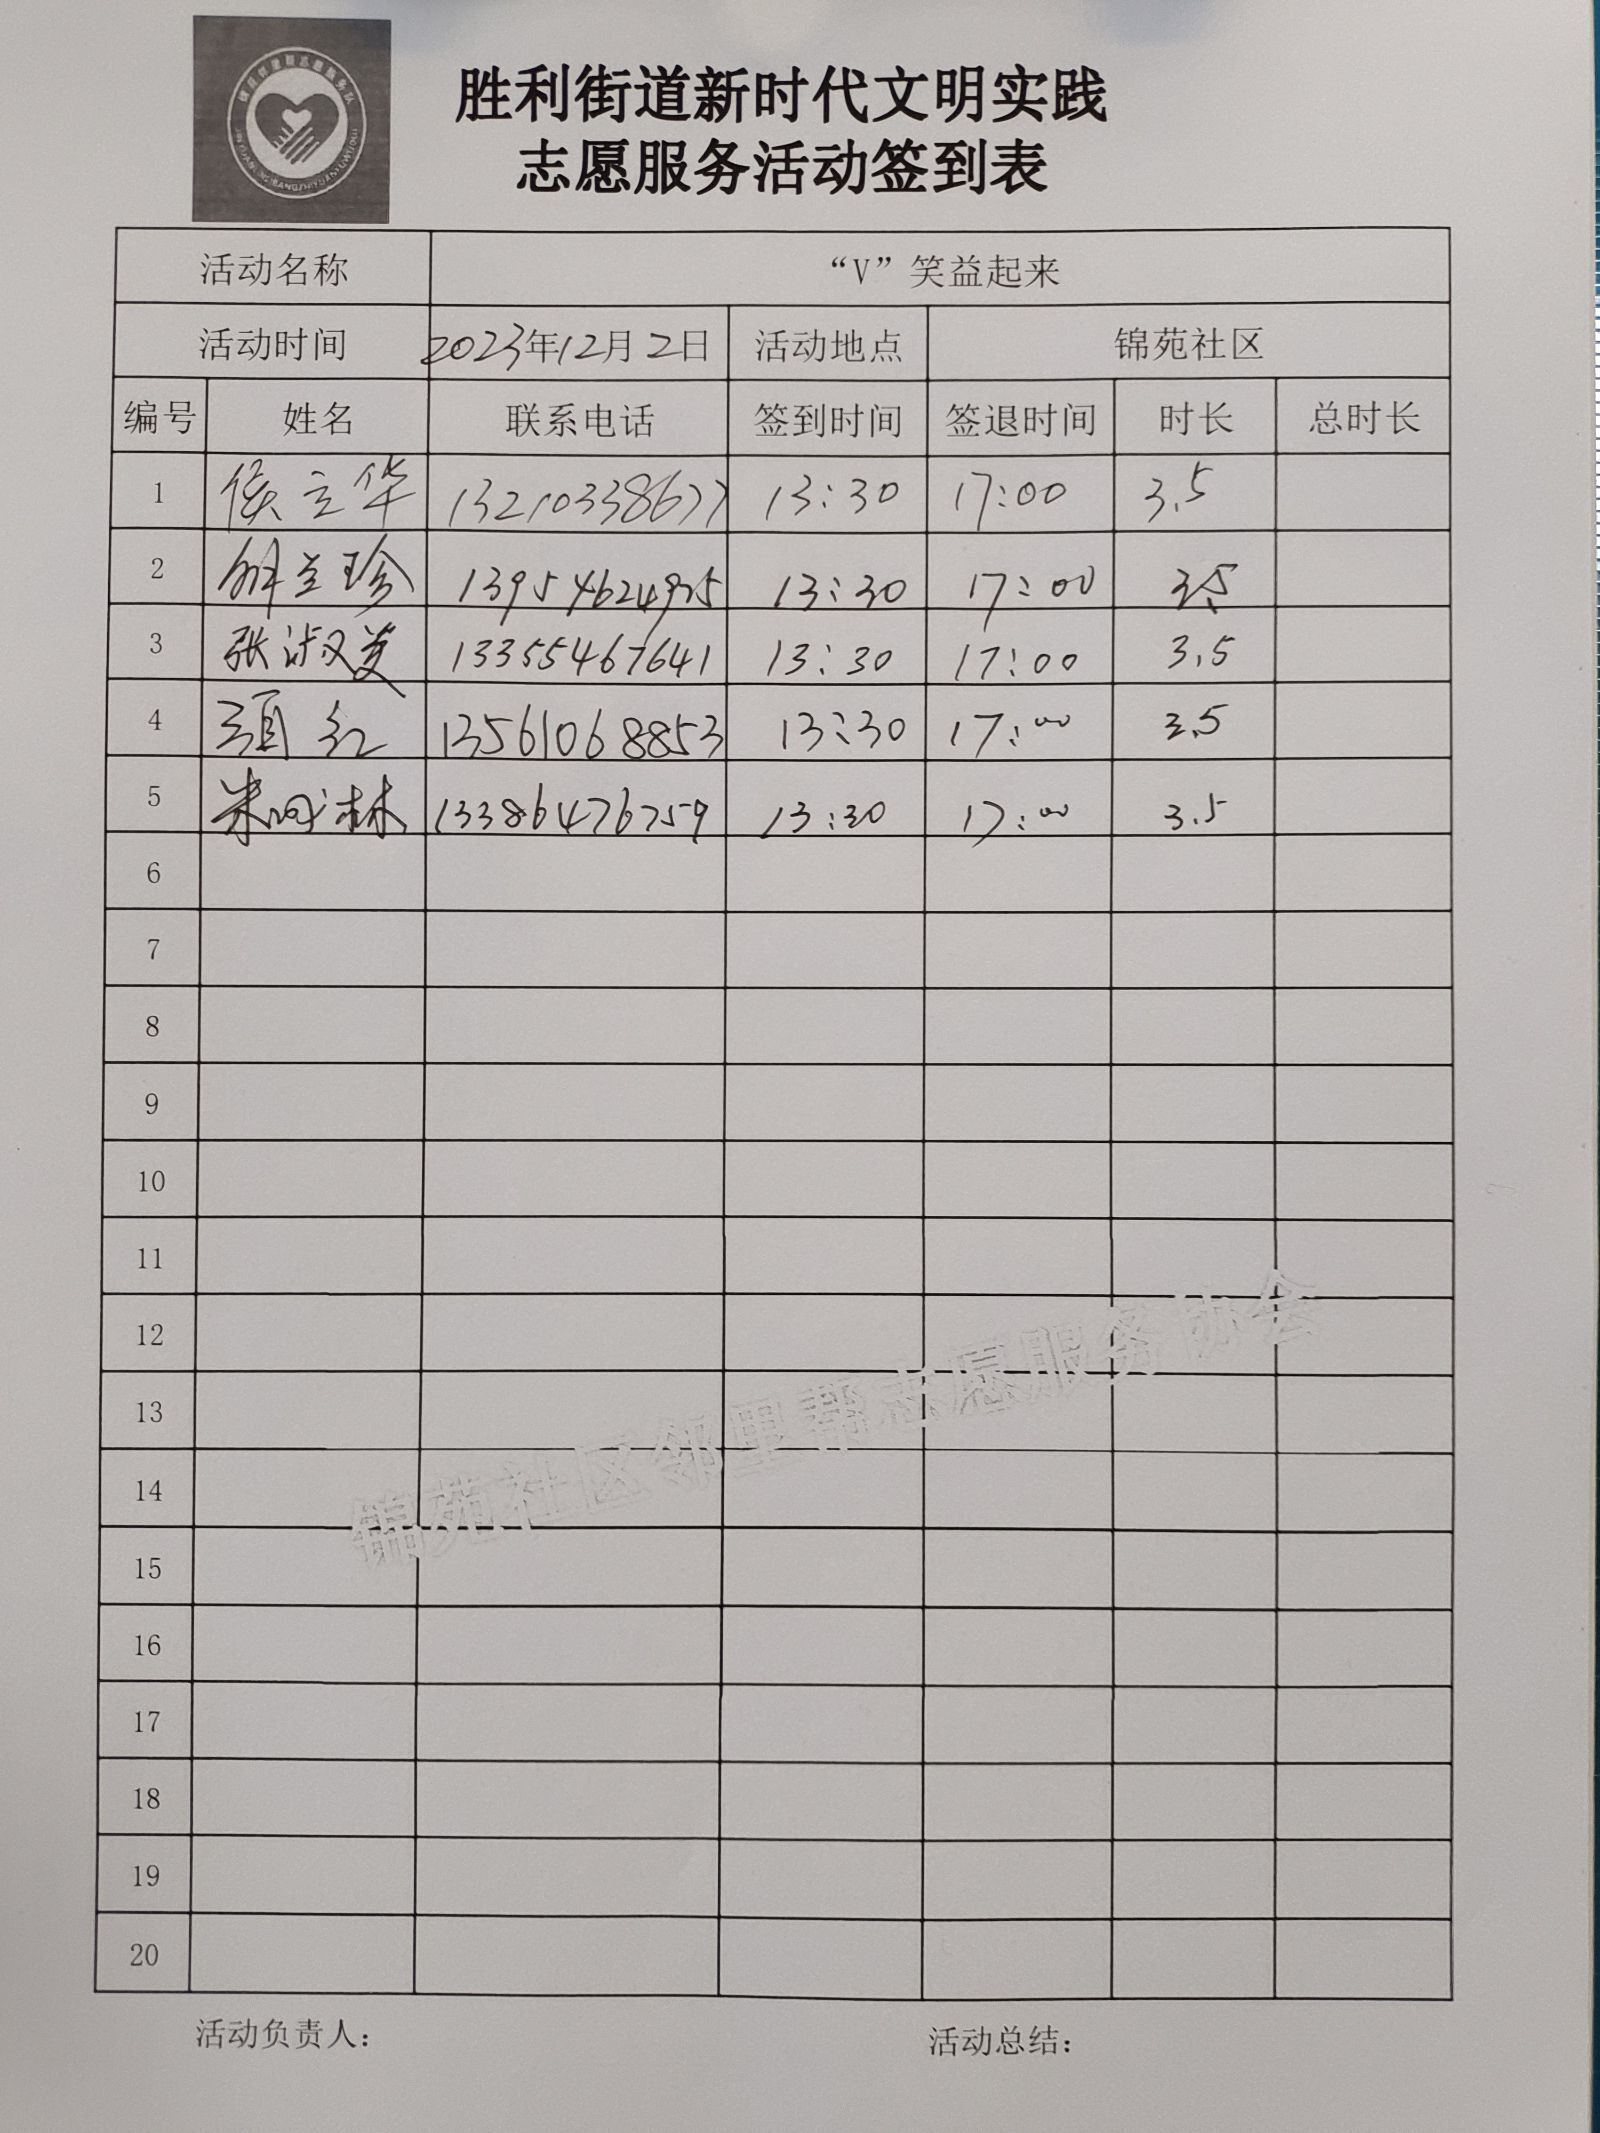 胜利街道新时代文明实践
志愿服务活动签到表
活动名称 “V”笑益起来
活动时间 2023年12月2日 活动地点 锦苑社区
编号 姓名 联系电话 签到时间 签退时间 时长 总时长
1 侯立华 13210338677 13:30 17:00 3.5
2 解兰珍 13954624975 13:30 17:00 3.5
3 张淑美 13355467641 13:30 17:00 3.5
4 红 13561068853 13:30 17:00 3.5
5 林 13386476759 13:30 17:00 3.5
6
7
8
9
10
11
12
13
14
15
16
17
18
19
20
锦苑社区邻里帮志愿服务协会
活动负责人：
活动总结：